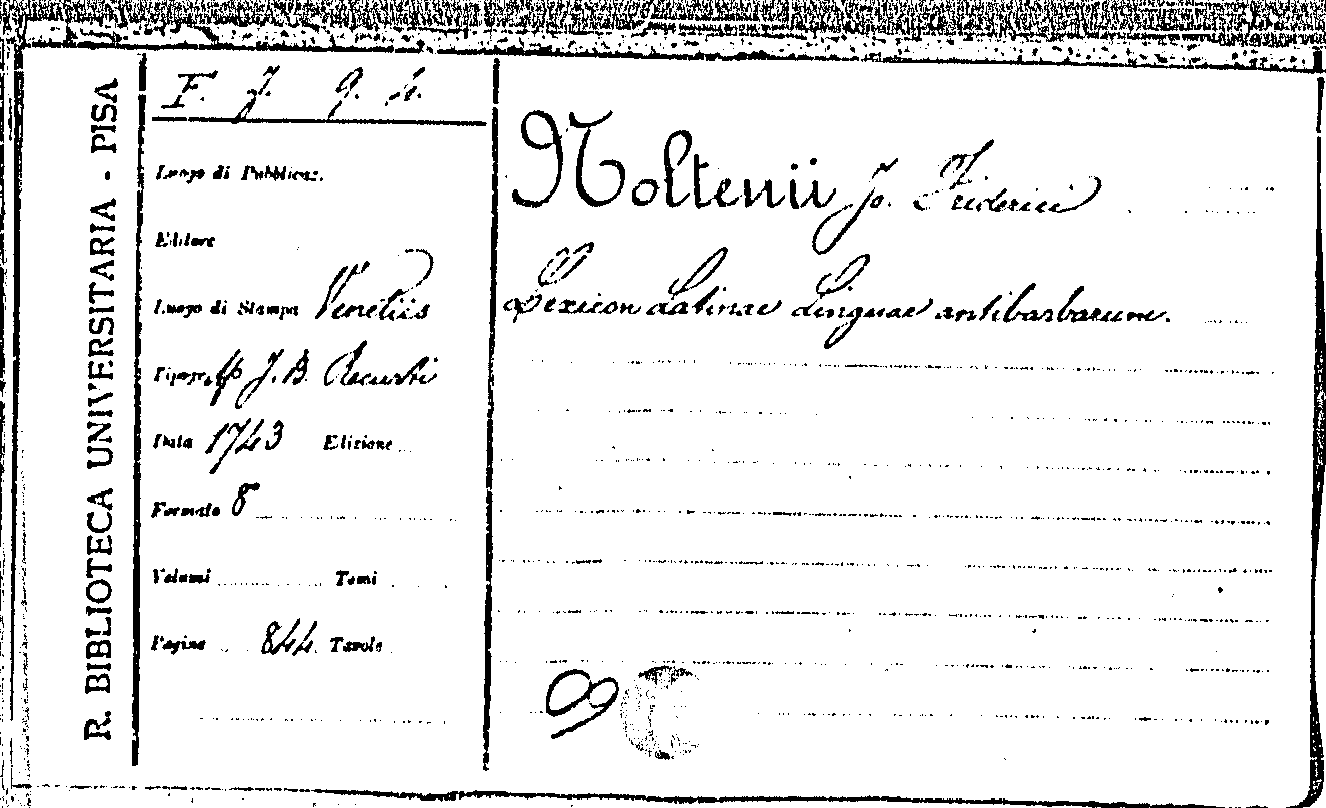 R. BIBLIOTECA UNIVERSITARIA - PISA
F. J. 9. 4.
Luogo di Pubblicaz.
Editore
Luogo di Stampa Venetiis
Tipogr. J. B. Recurti
Data 1743 Edizione
Formato 8°
Volumi Tomi
Pagine 844. Tavole
Noltenii Jo. Friderici
Lexicon Latinae Linguae antibarbarum.